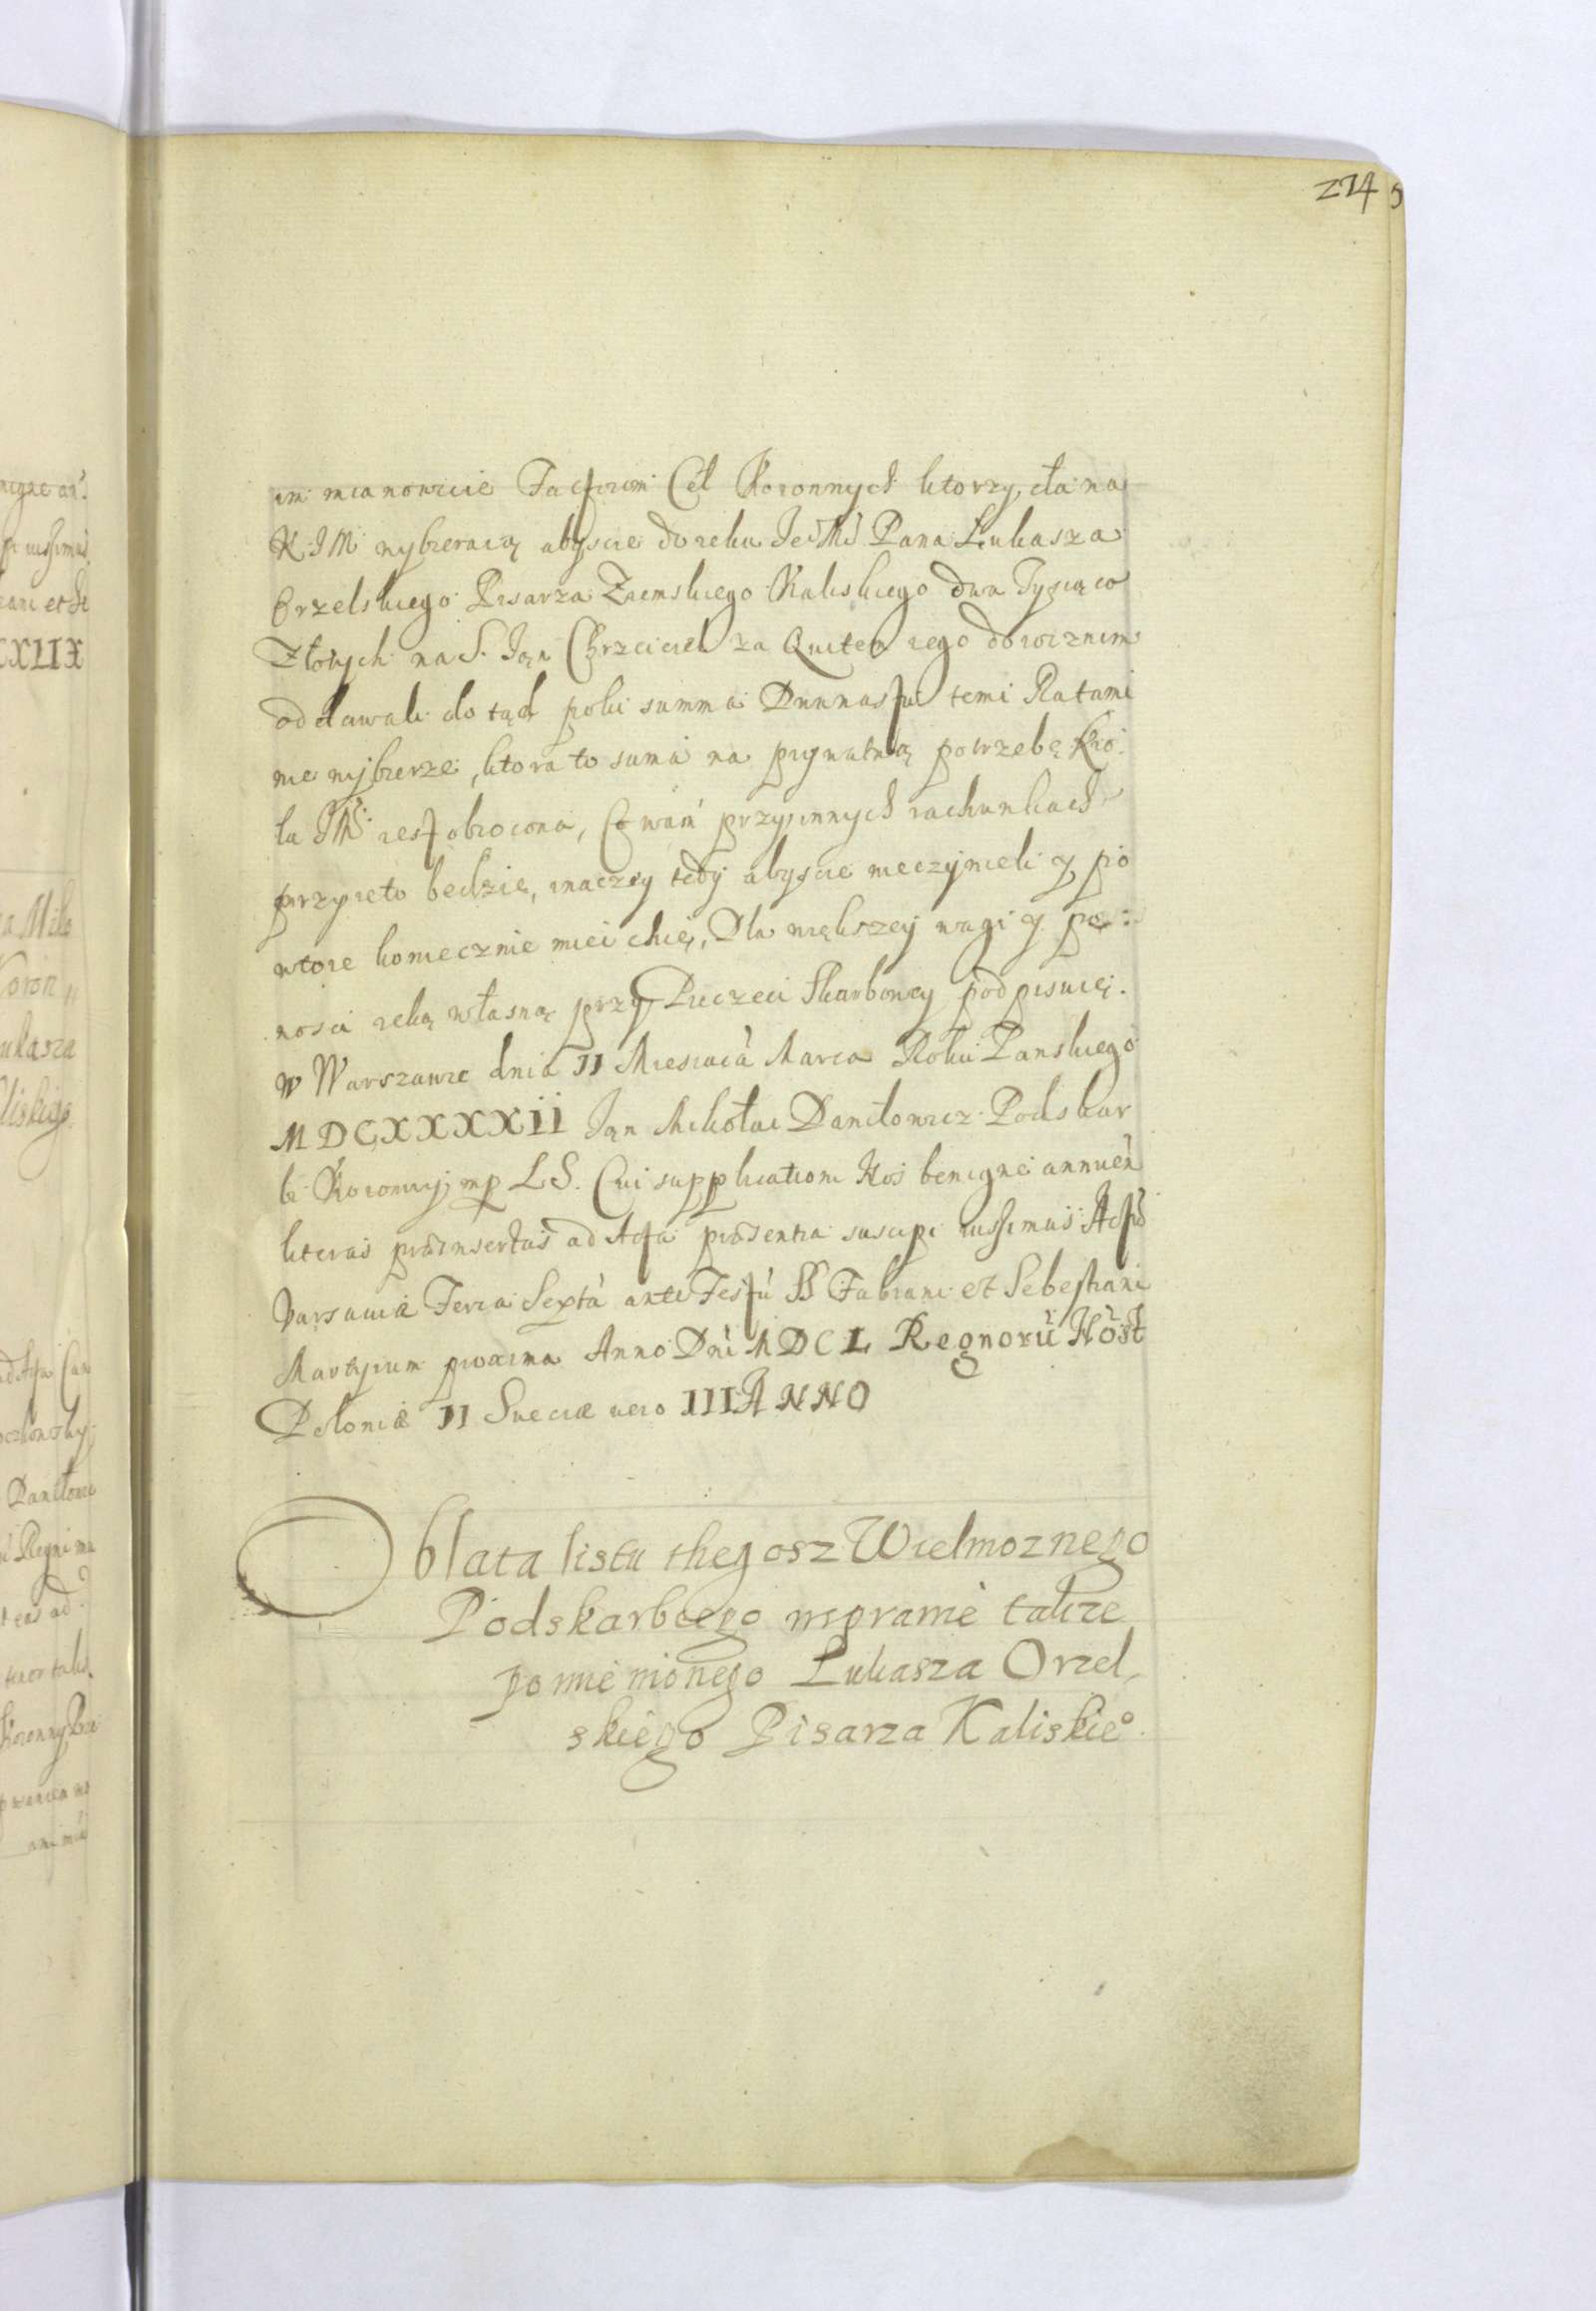 214
im mianowicie Factorom Cel Koronnych ktorzy cła na
K. J M. wybieraią abyscie do ręku Je͠o Mci Pana Łukasza
Orzelskiego Pisarza Ziemskiego Kaliskiego dwa Tysiąca
Złotych na S. Jan Chrzciciel za Quitem iego dorocznim
oddawali do tąd poki summa Dwunastu temi Ratami
nie wybierze, ktora to suma na prywatną potrzebę Kro
la JM iest obrocona, Co wam przy innych rachunkach
przyięto będzie, inaczey tedy abyscie nieczynieli y po
wtore koniecznie mieć chcę, Dla większey wagi y pe:
nosci ręką własną przy Pieczęci Skarbowey podpisuię.
W Warszawie dnia 11 Miesiaca Marca Roku Panskiego
MDCXXXXII Jan Mikołai Daniłowicz Podskar
bi Koronny mp L S. Cui supplicationi Nos benigne annuen̄
literas præinsertas ad Acta præsentia suscipi iussimus Actū
Varsaviæ Feria Sexta ante Festū SS Fabiani et Sebestiani
Martyrum proxima Anno Dn̄i MDCL Regnorū N̄ost
Poloniæ II Sueciæ vero III ANNO
Oblata listu thegosz Wielmoznego
Podskarbiego wsprawie takze
pomienionego Lukasza Orzel,
skiego Pisarza Kaliskie°